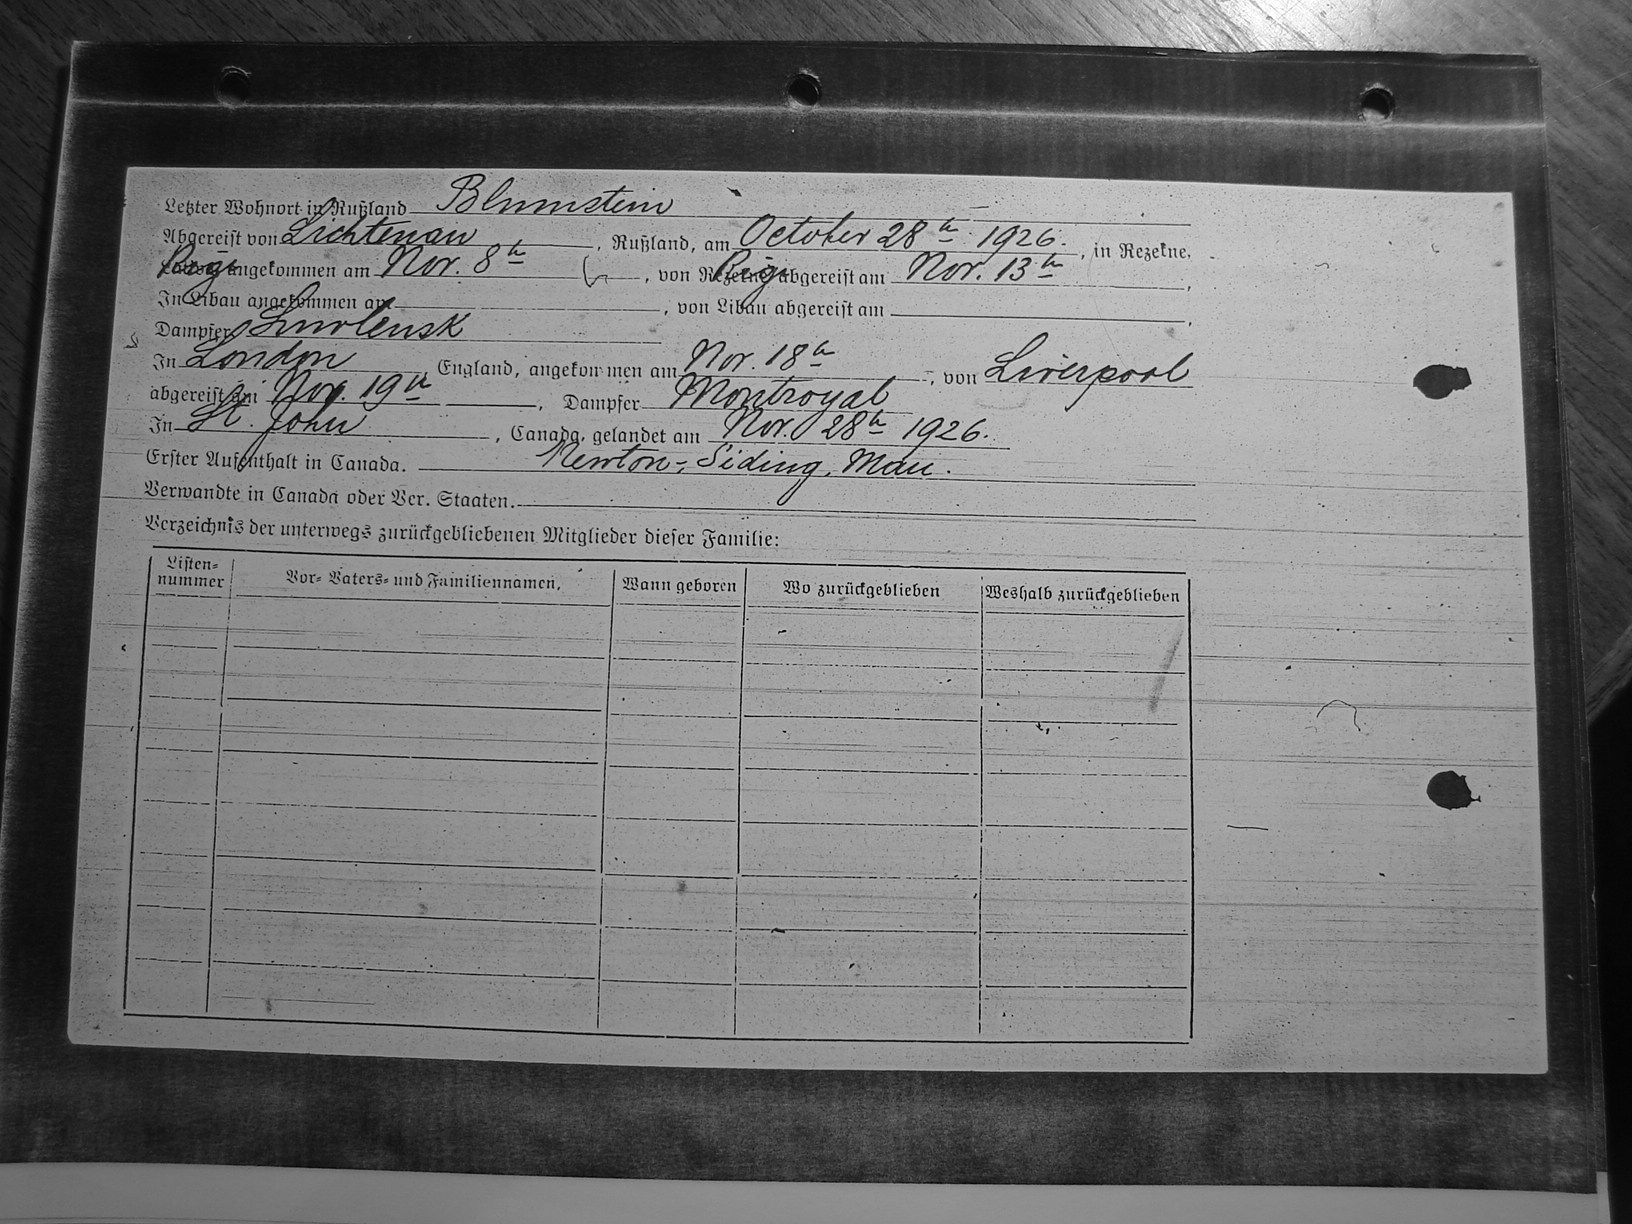 Letzter Wohnort in Rußland Blumstein
Abgereist von Lichtenau, Rußland, am October 28th 1926., in Rezekne,
Riga angekommen am Nov. 8th, von Riga abgereist am Nov. 13th,
In Libau angekommen am, von Libau abgereist am,
Dampfer Smolensk
In London, England, angekommen am Nov. 18th, von Liverpool
abgereist am Nov. 19th, Dampfer Montroyal
In St. John, Canada, gelandet am Nov. 28th 1926.
Erster Aufenthalt in Canada. Newton-Siding, Man.
Verwandte in Canada oder Ver. Staaten.
Verzeichnis der unterwegs zurückgebliebenen Mitglieder dieser Familie:
Listen-
nummer Vor- Vaters- und Familiennamen. Wann geboren Wo zurückgeblieben Weshalb zurückgeblieben